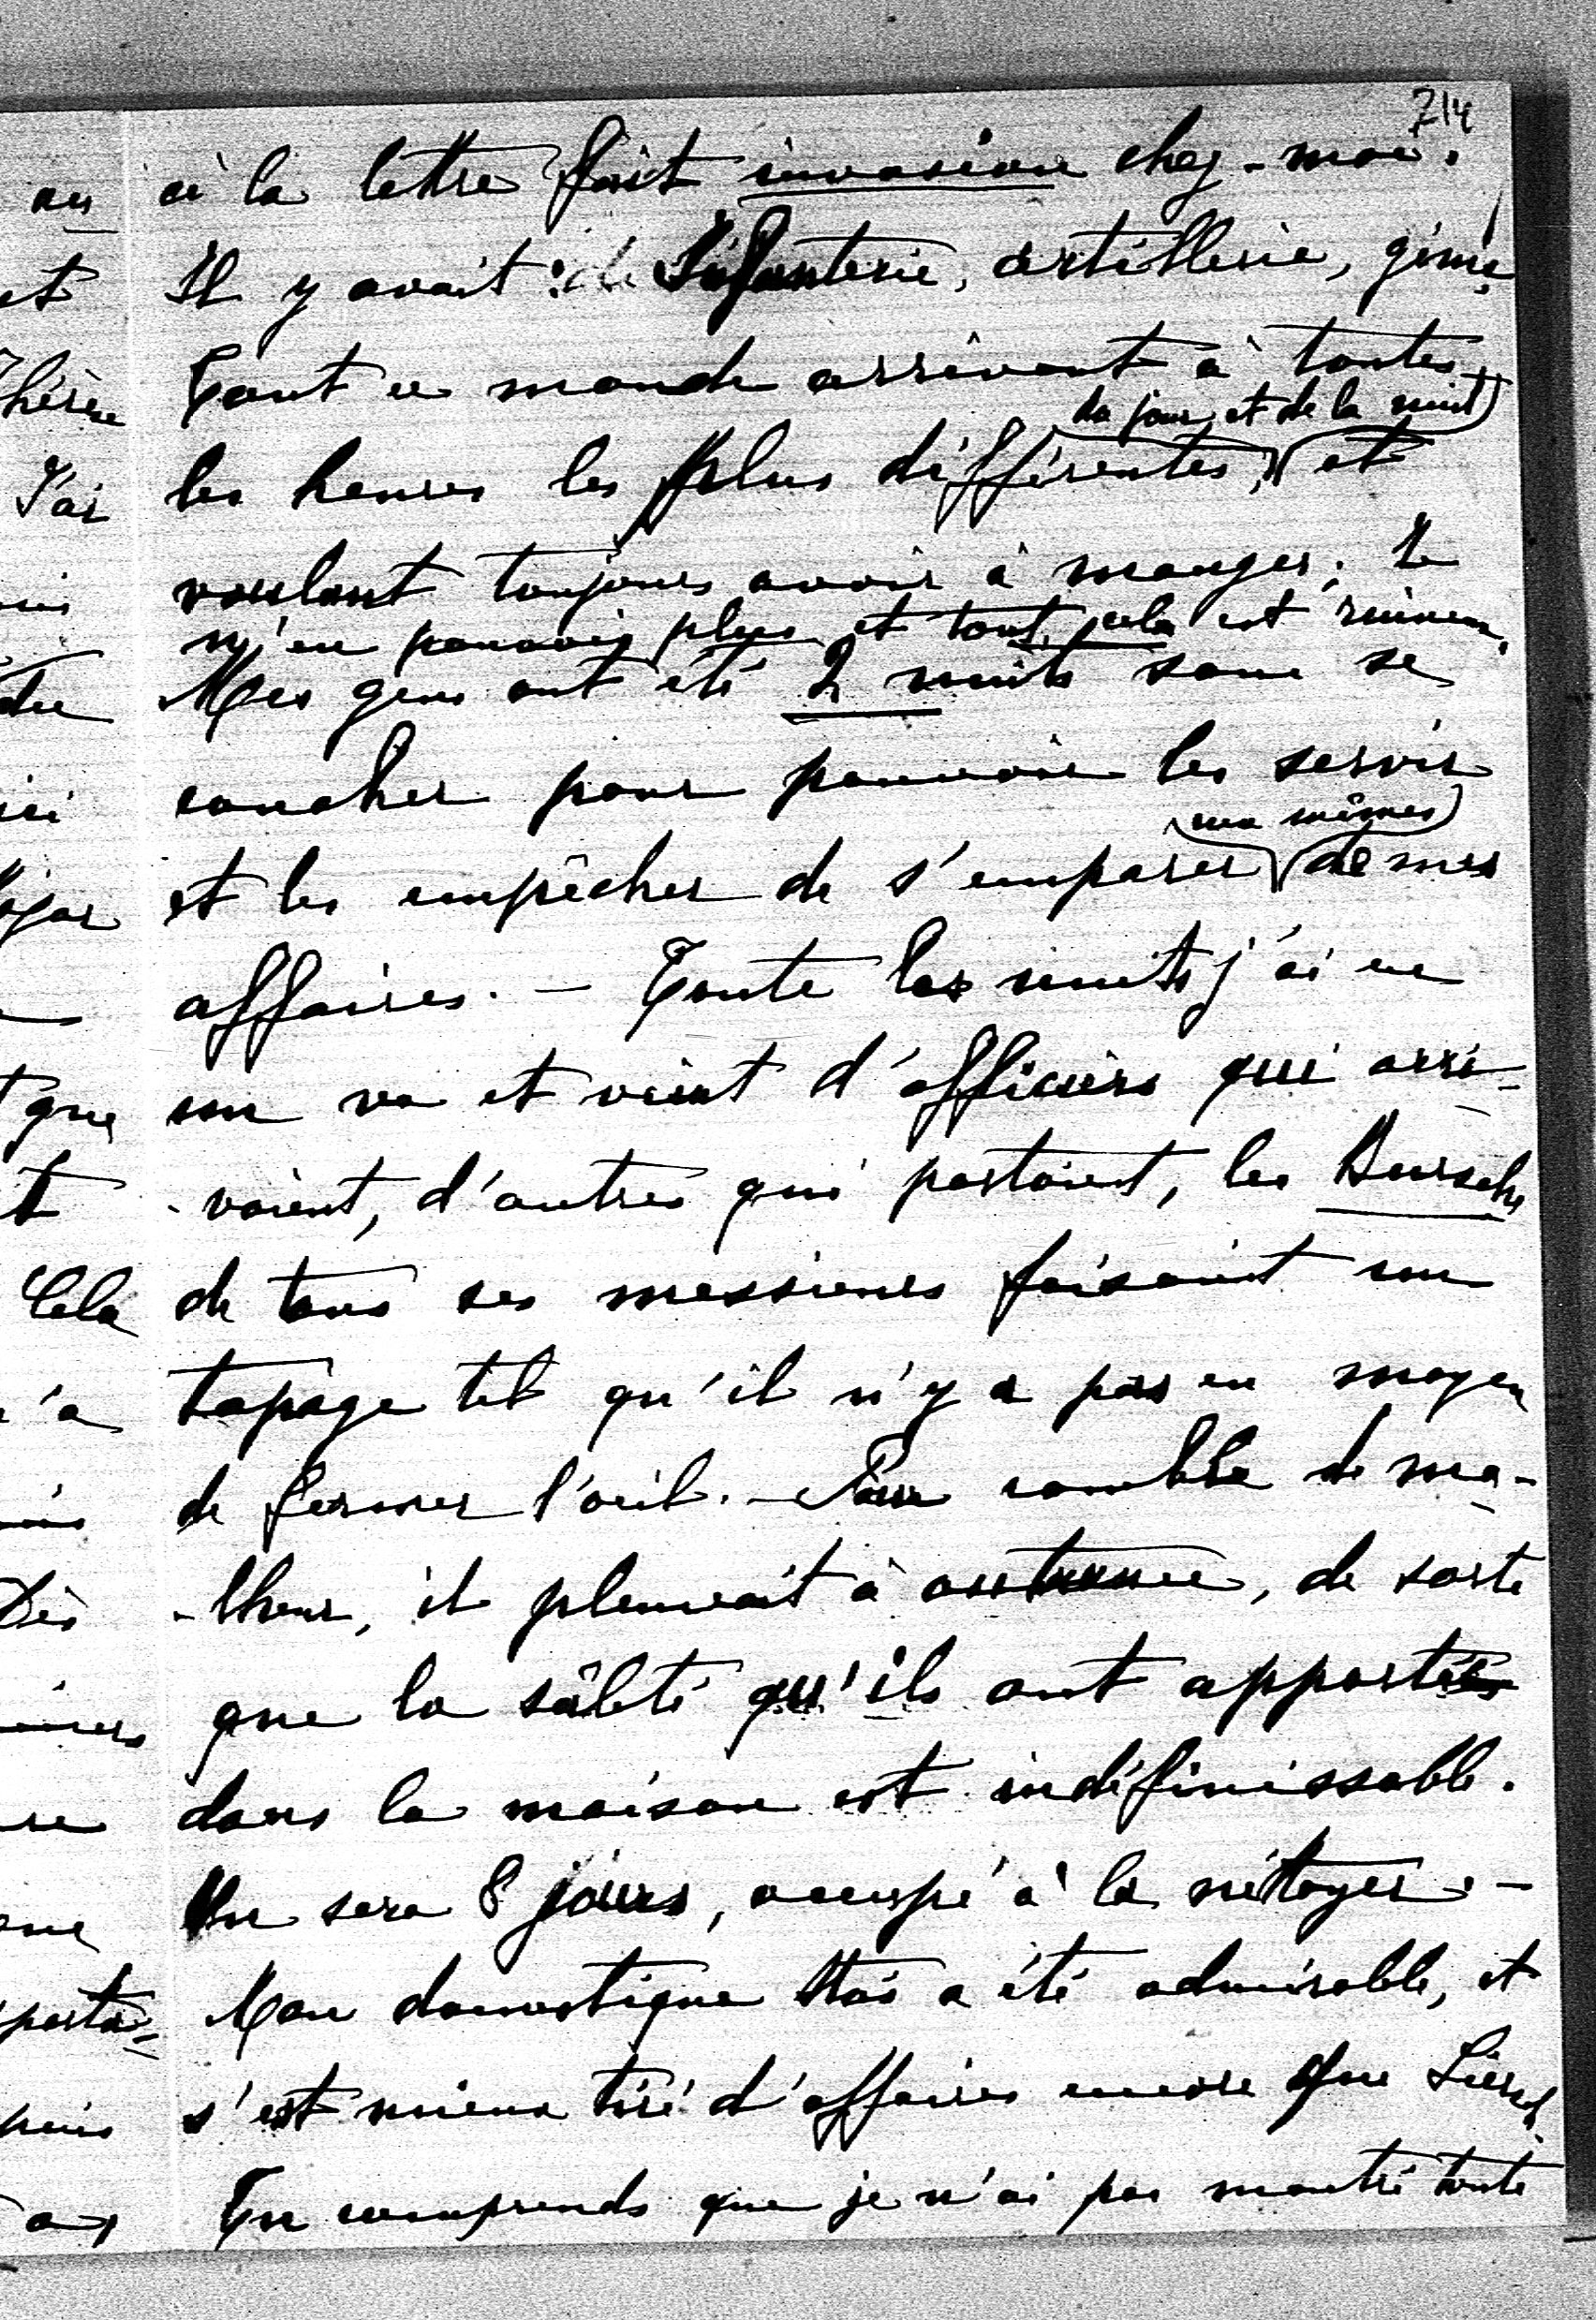 714
à la lettre fait invasion chez-moi.
Il y avait: de l'Infanterie, artillerie, génie!
Tout ce monde arrivant à toutes
les heures les plus différentes, (du jour et de la nuit) et
voulant toujours avoir à manger; Je
n'en pouvais plus et tout cela est ruineux.
Mes gens ont été 2 nuits sans se
coucher pour pouvoir les servir
et les empêcher de s'emparer (eux mêmes) de mes
affaires. – Toute les nuits j'ai eu
un va et vient d'officiers qui arri-
-vaient, d'autres qui partaient, les Burschs
de tous ses messieurs faisaient un
tapage tel qu'il n'y a pas eu moyen
de fermer l'œil. – Pour comble de ma-
-lheur, il pleuvait à outrance, de sorte
que la sâleté qu'ils ont apportées
dans la maison est indéfinissable.
On sera 8 jours, occupé à la nétoyer. –
Mon domestique Stas a été admirable, et
s'est mieux tiré d'affaires encore que
Tu comprends que je n'ai pas montré toute